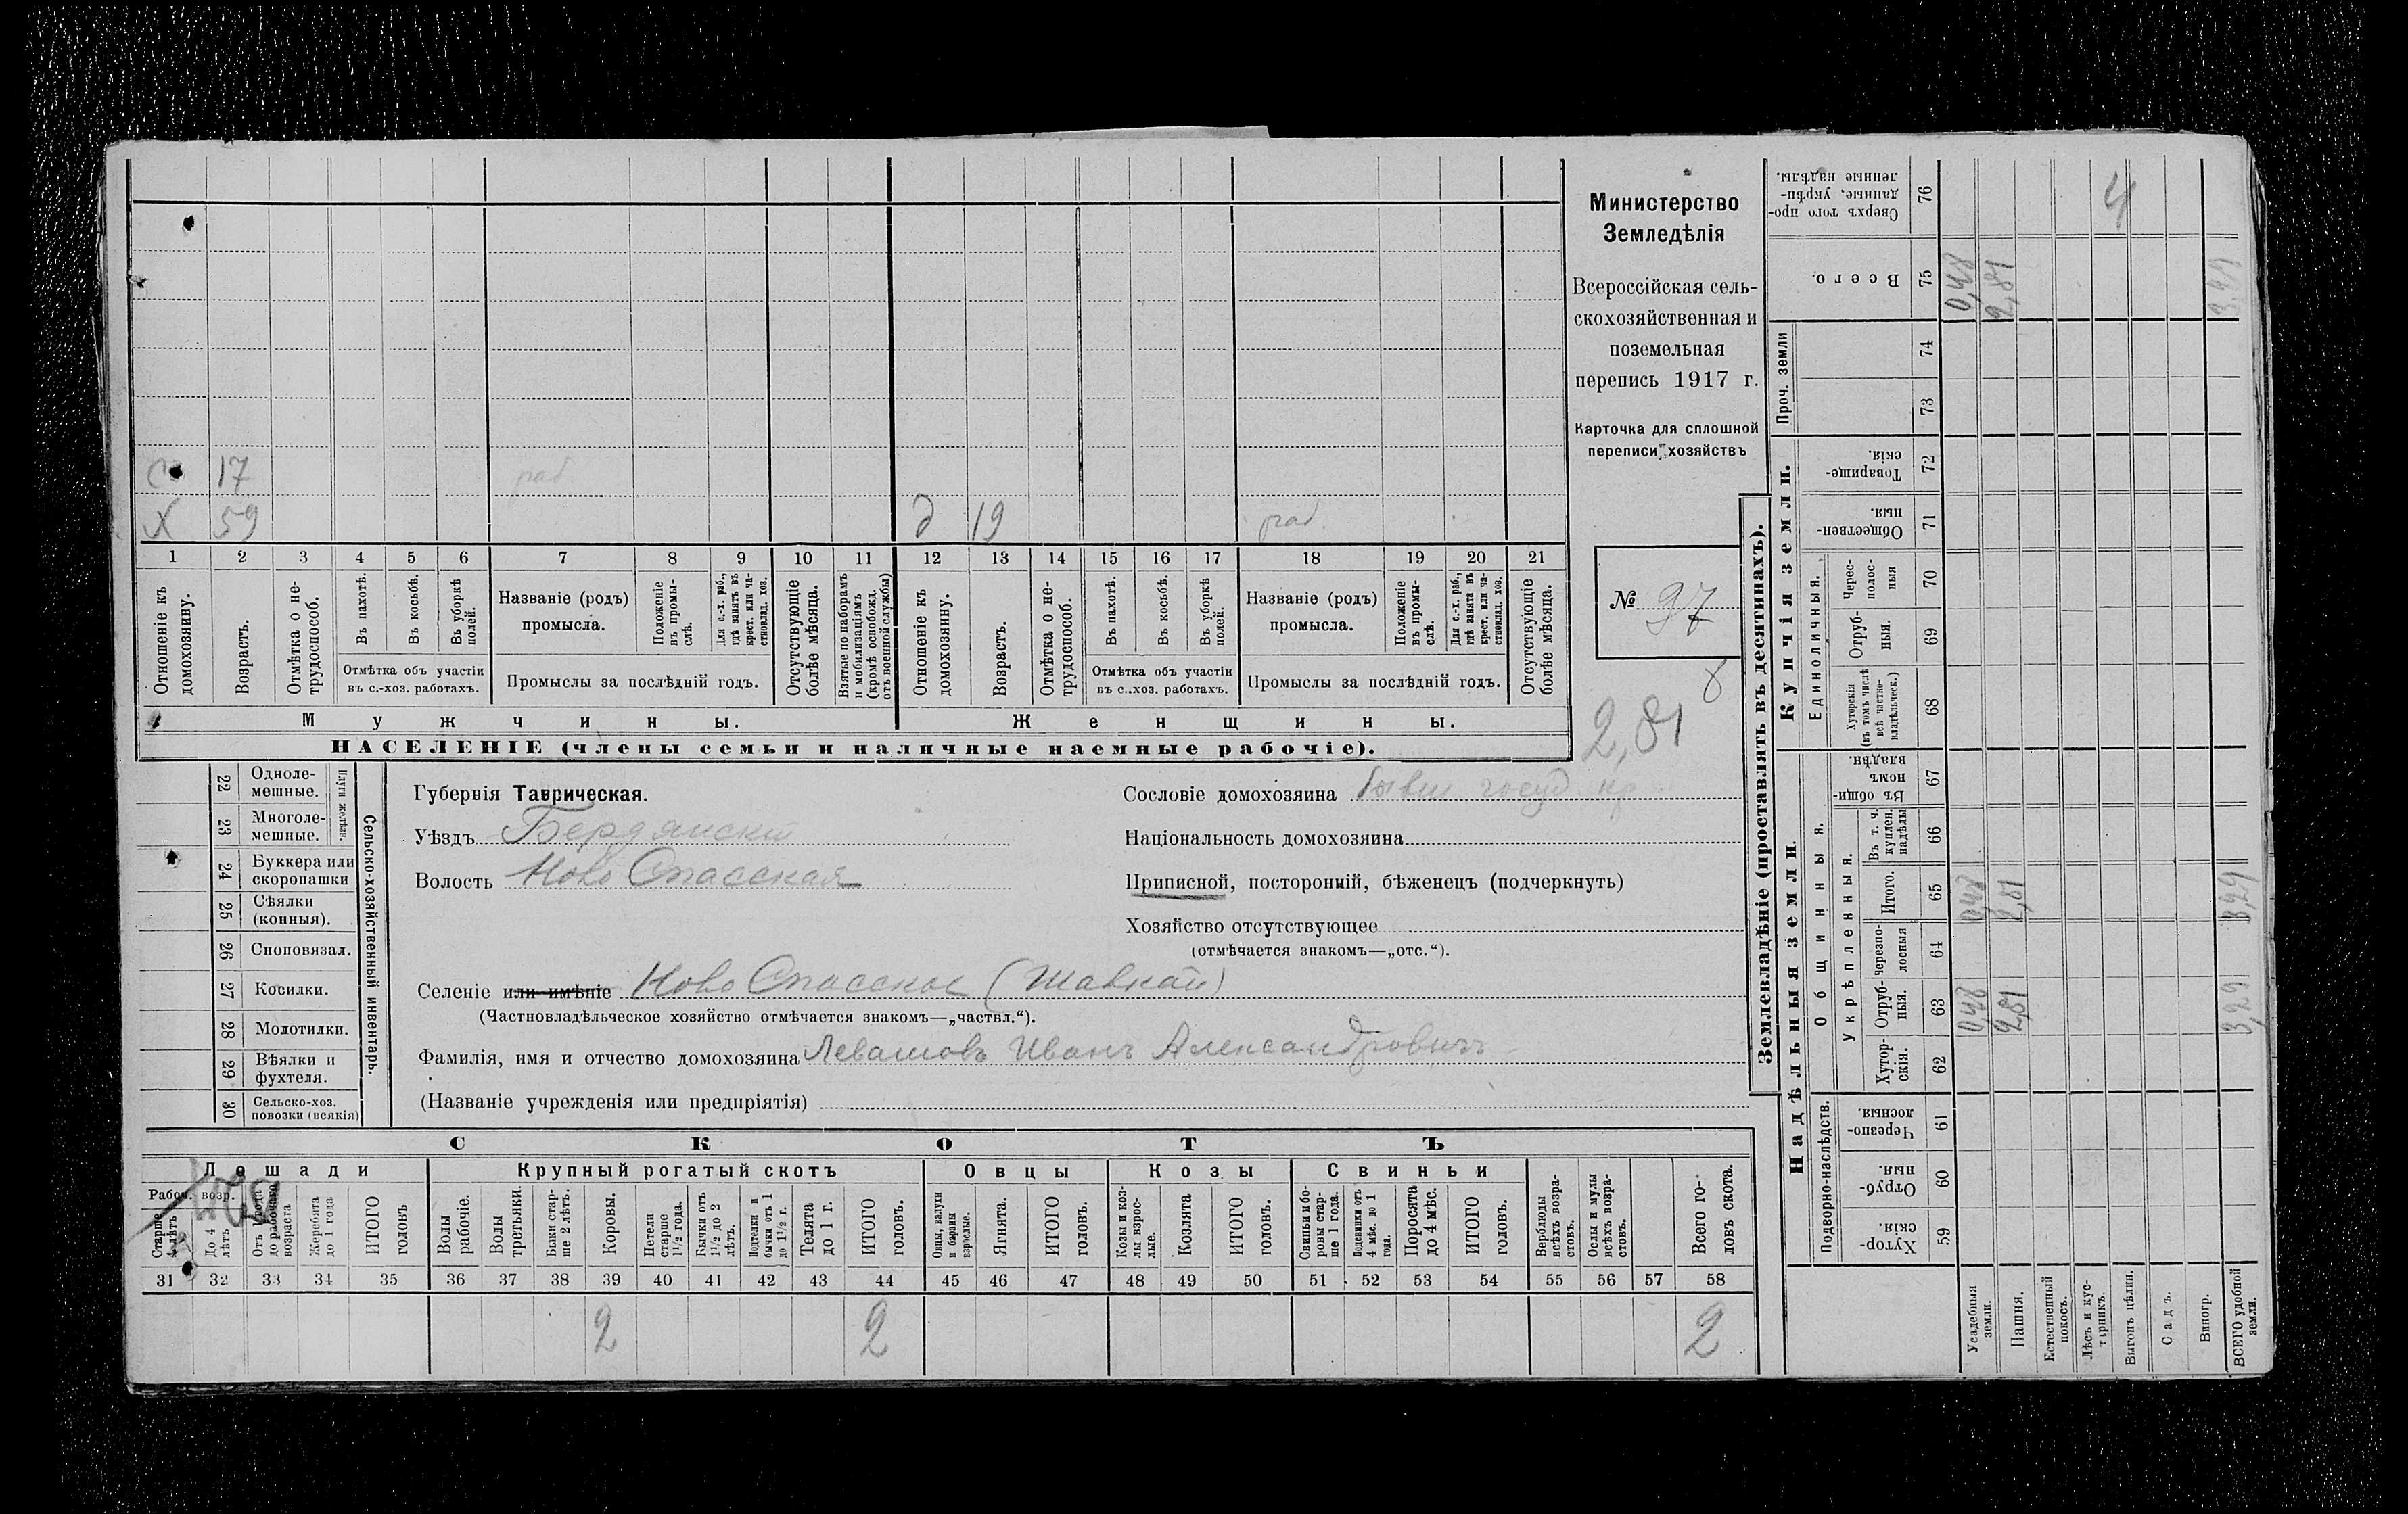 Министерство
Земледѣлія
Всероссійская сель-
скохозяйственная и
поземельная
перепись 1917 г.
Карточка для сплошной
переписи хозяйствъ
№ 37
8
2,81
С 17 раб
Х 59 д 19 раб.
1 2 3 4 5 6 7 8 9 10 11 12 13 14 15 16 17 18 19 20 21
Отношеніе къ домохозяину.
Возрастъ.
Отмѣтка о не-трудоспособ.
Въ пахотѣ.
Въ косьбѣ.
Въ уборкѣ полей.
Отмѣтка объ участіи
въ с.-хоз. работахъ.
Названіе (родъ)
промысла.
Положеніе въ промы-слѣ.
Для с.-х. раб., гдѣ занятъ въ крест. или ча-стновлад. хоз.
Промыслы за послѣдній годъ.
Отсутствующіе болѣе мѣсяца.
Взятые по наборамъ и мобилизаціямъ (кромѣ освобожд. отъ военной службы)
Отношеніе къ домохозяину.
Возрастъ.
Отмѣтка о не-трудоспособ.
Въ пахотѣ.
Въ косьбѣ.
Въ уборкѣ полей.
Отмѣтка объ участіи
въ с..хоз. работахъ.
Названіе (родъ)
промысла.
Положеніе въ промы-слѣ.
Для с.-х. раб., гдѣ занята въ крест. или ча-стновлад. хоз.
Промыслы за послѣдній годъ.
Отсутствующіе болѣе мѣсяца.
Мужчины. Женщины.
НАСЕЛЕНІЕ (члены семьи и наличные наемные рабочіе).
Сельско-хозяйственный инвентарь.
Плуги желѣзн.
22 Одноле-мешные.
23 Многоле-мешные.
24 Буккера или скоропашки
25 Сѣялки (конныя).
26 Сноповязал.
27 Косилки.
28 Молотилки.
29 Вѣялки и фухтеля.
30 Сельско-хоз. повозки (всякія)
Губернія Таврическая.
Уѣздъ Бердянскій
Волость Ново Спасская
Сословіе домохозяина бывш госуд кр
Національность домохозяина
Приписной, посторонній, бѣженецъ (подчеркнуть)
Хозяйство отсутствующее
(отмѣчается знакомъ—„отс.“).
Селеніе или имѣніе Ново Спасское (Шавкай)
(Частновладѣльческое хозяйство отмѣчается знакомъ—„частвл.“).
Фамилія, имя и отчество домохозяина Левашовъ Иванъ Александровичъ
(Названіе учрежденія или предпріятія)
СКОТЪ
Лошади Крупный рогатый скотъ Овцы Козы Свиньи
Рабоч. возр.
Старше 4 лѣтъ
До 4 лѣтъ
Отъ 1 года до рабочаго возраста
Жеребята до 1 года
ИТОГО головъ
Волы рабочіе.
Волы третьяки.
Быки стар-ше 2 лѣтъ.
Коровы.
Нетели старше 1½ года.
Бычки отъ 1½ до 2 лѣтъ.
Подтелки и бычки отъ 1 до 1½ г.
Телята до 1 г.
ИТОГО головъ.
Овцы, валухи и бараны взрослые.
Ягнята.
ИТОГО головъ.
Козы и коз-лы взрос-лые.
Козлята
ИТОГО головъ.
Свиньи и бо-ровы стар-ше 1 года.
Подсвинки отъ 4 мѣс. до 1 года.
Поросята до 4 мѣс.
ИТОГО головъ.
Верблюды всѣхъ возра-стовъ.
Ослы и мулы всѣхъ возра-стовъ.
Всего го-ловъ скота.
31 32 33 34 35 36 37 38 39 40 41 42 43 44 45 46 47 48 49 50 51 52 53 54 55 56 57 58
2 2 2
Землевладѣніе (проставлять въ десятинахъ).
Сверхъ того про-данные, укрѣп-ленные надѣлы. 76 4
Всего. 75 0,48 2,81 3,29
Купчія земли.
Проч. земли 74
73
Товарище-скія. 72
Обществен-ныя. 71
Единоличныя.
Черес-полос-ныя 70
Отруб-ныя. 69
Хуторскія (въ томъ числѣ всѣ частно-владѣльческ.) 68
Надѣльныя земли.
Общинныя.
Въ общи-номъ владѣн. 67
Укрѣпленныя.
Въ т. ч. куплен. надѣлы 66
Итого. 65 0,48 2,81 3,29
Черезпо-лосныя 64
Отруб-ныя. 63 0,48 2,81 3,29
Хутор-скія. 62
Подворно-наслѣдств.
Черезпо-лосныя. 61
Отруб-ныя. 60
Хутор-скія. 59
Усадебныя земли.
Пашня.
Естественный покосъ.
Лѣсъ и кус-тарникъ.
Выгонъ цѣлин.
Садъ.
Виногр.
ВСЕГО удобной земли.